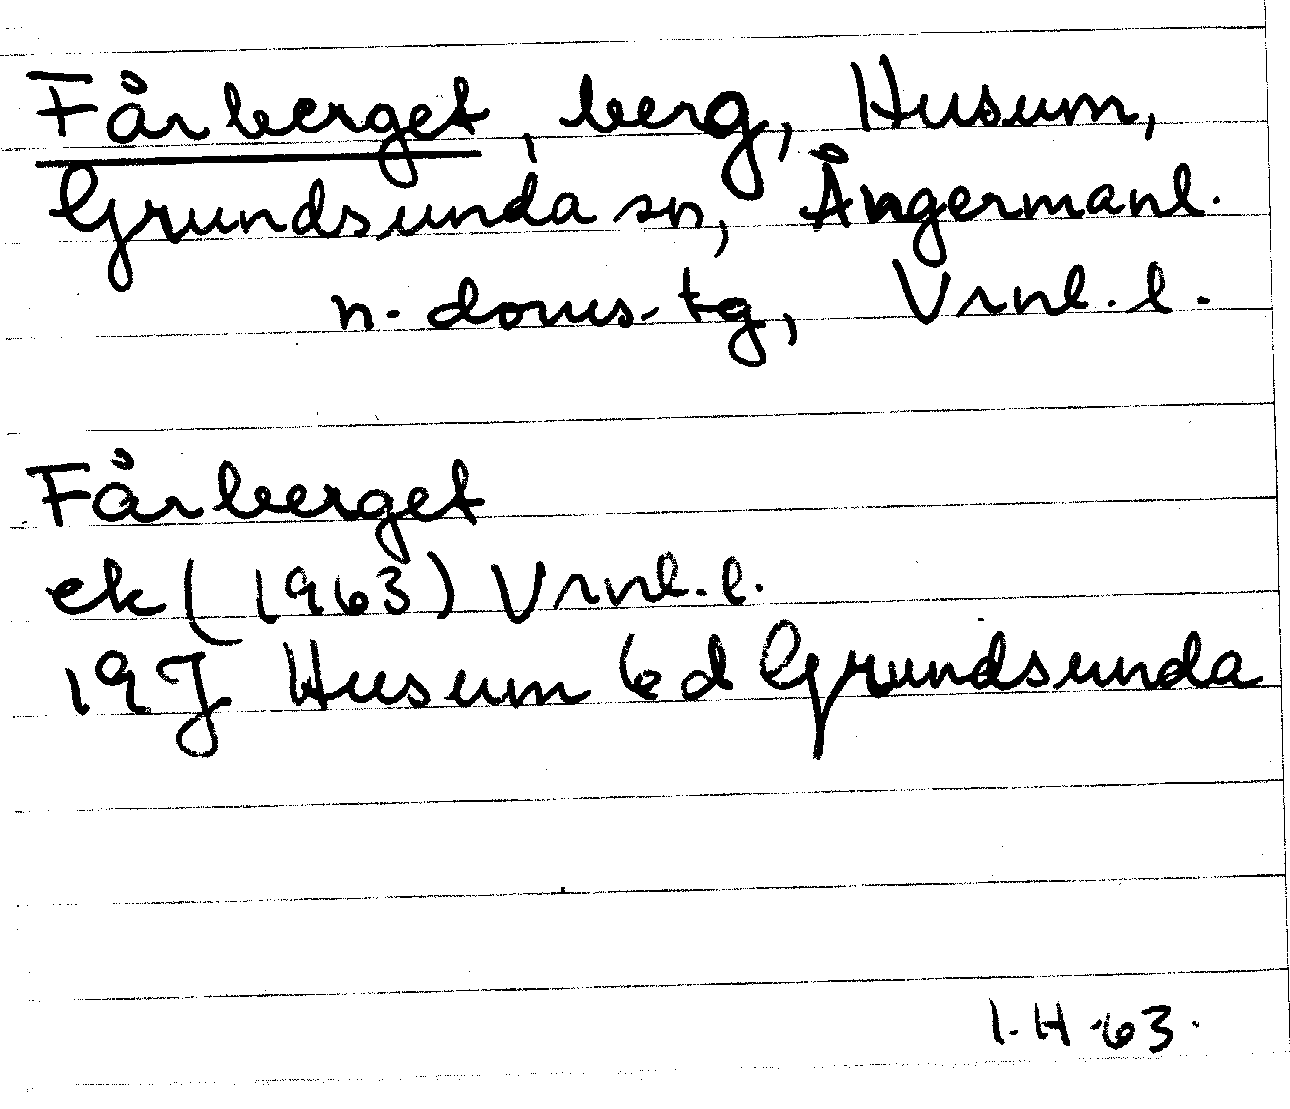 Fårberget, berg, Husum,
Grundsunda sn, Ångermanl.
n. doms. tg, Vrnl. l.
Fårberget
ek (1963) Vrnl. l.
19J Husum 6d Grundsunda
I. H -63.